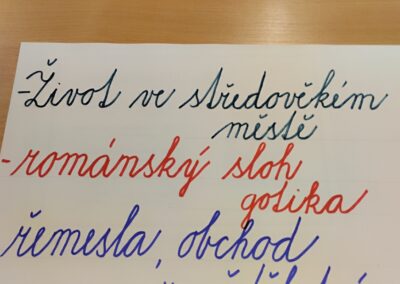 -Život ve středověkém
městě
-románský sloh
gotika
řemesla, obchod